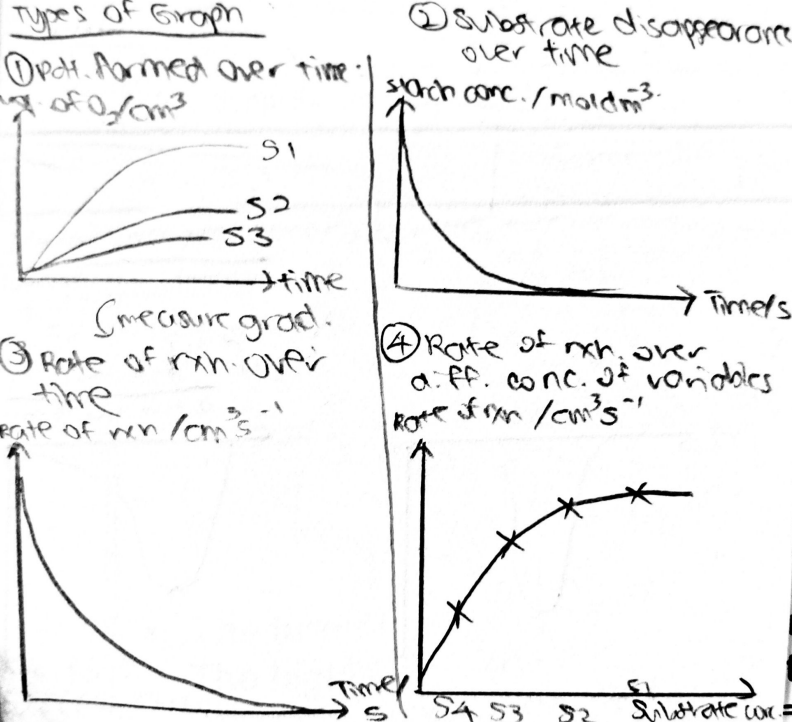 Types of Graph
① Pdt. formed over time.
of O2/cm³
S1
S2
S3
time
measure grad.
② Substrate disappearance
over time
starch conc. / moldm⁻³.
Time/s
③ Rate of rxn. over
time
Rate of rxn /cm³s⁻¹
Time/
s
④ Rate of rxn. over
diff. conc. of variables
Rate of rxn /cm³s⁻¹
S4 S3 S2 S1
Substrate conc.